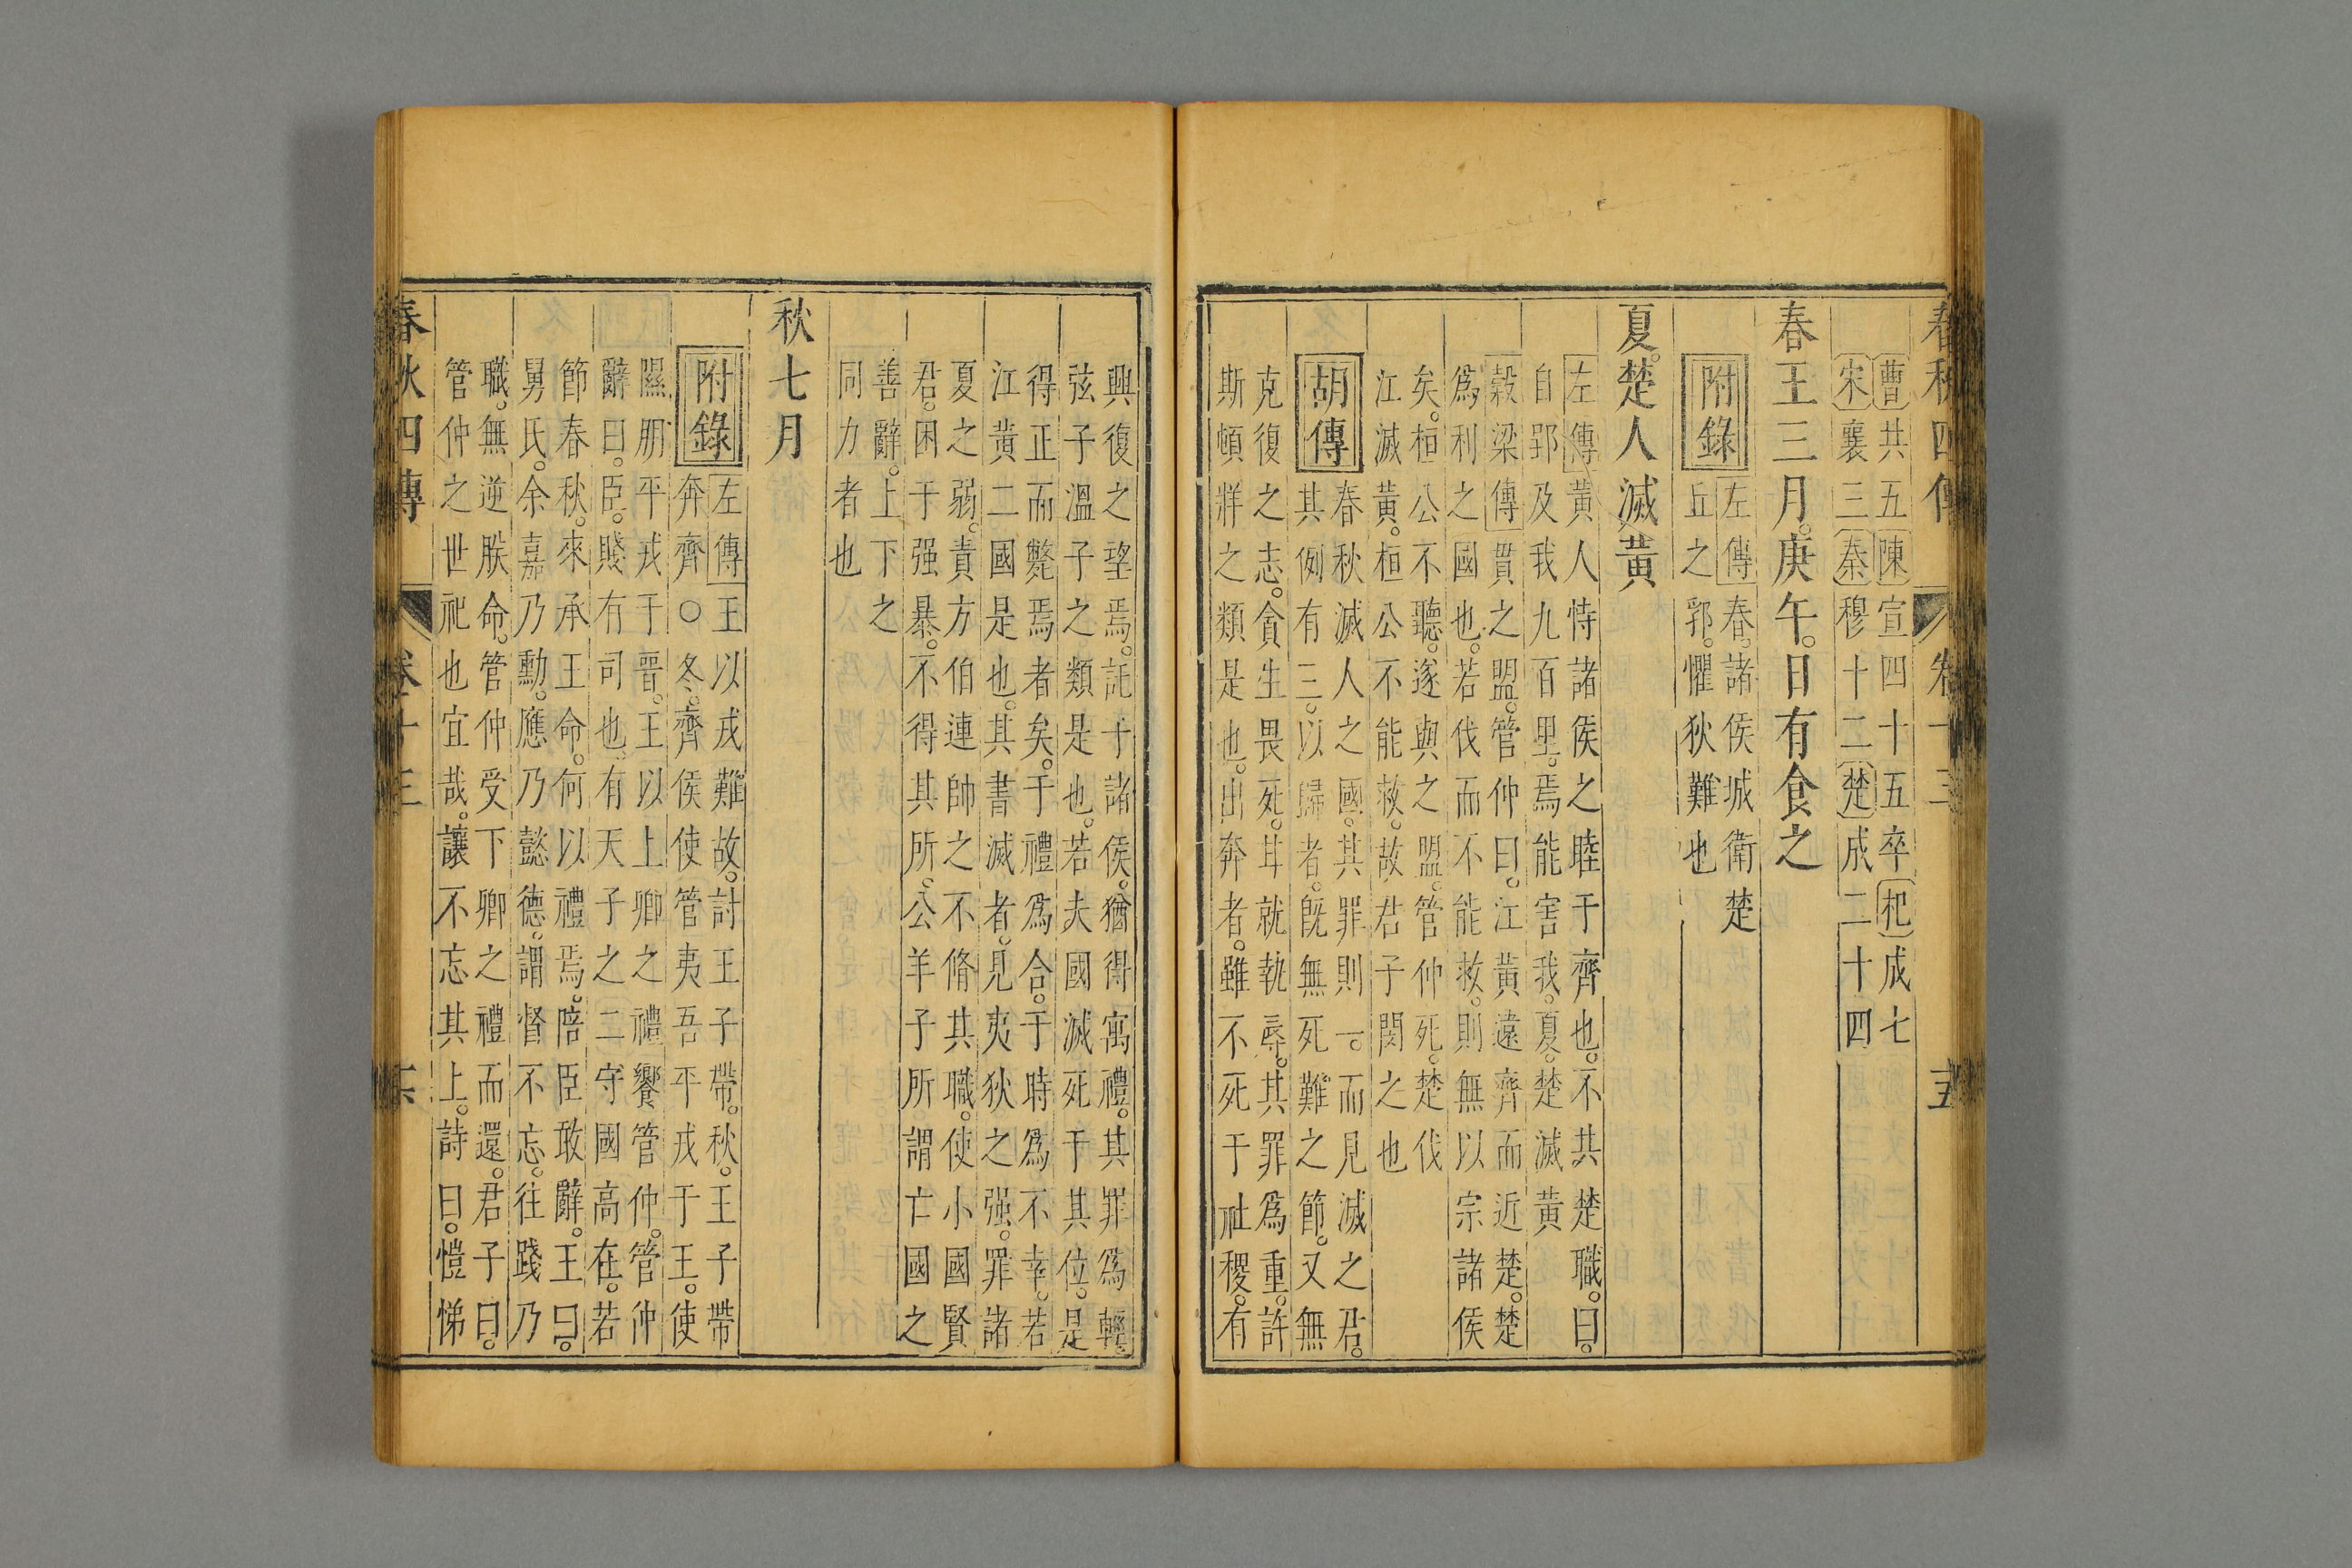 春秋四傳 卷十三 五
曹共五陳宣四十五卒杞成七
宋襄三秦穆十二楚成二十四
春王三月。庚午。日有食之
附錄
左傳春。諸侯城衛楚
丘之郛。懼狄難也
夏。楚人滅黃
左傳黃人恃諸侯之睦于齊也。不共楚職。曰。
自郢及我九百里。焉能害我。夏。楚滅黃
穀梁傳貫之盟。管仲曰。江黃遠齊而近楚。楚
爲利之國也。若伐而不能救。則無以宗諸侯
矣。桓公不聽。遂與之盟。管仲死。楚伐
江滅黃。桓公不能救。故君子閔之也
胡傳
春秋滅人之國。其罪則一。而見滅之君。
其例有三。以歸者。旣無死難之節。又無
克復之志。貪生畏死。甘就執辱。其罪爲重。許
斯頓牂之類是也。出奔者。雖不死于社稷。有
興復之望焉。託于諸侯。猶得寓禮。其罪爲輕
弦子溫子之類是也。若夫國滅死于其位。是
得正而斃焉者矣。于禮爲合。于時爲不幸。若
江黃二國是也。其書滅者。見夷狄之强。罪諸
夏之弱。責方伯連帥之不脩其職。使小國賢
君。困于强暴。不得其所。公羊子所謂亡國之
善辭。上下之
同力者也
秋七月
附錄
左傳王以戎難故。討王子帶。秋。王子帶
奔齊○冬。齊侯使管夷吾平戎于王。使
隰朋平戎于晉。王以上卿之禮饗管仲。管仲
辭曰。臣。賤有司也。有天子之二守國高在。若
節春秋。來承王命。何以禮焉。陪臣敢辭。王曰。
舅氏。余嘉乃勳。應乃懿德。謂督不忘。往踐乃
職。無逆朕命。管仲受下卿之禮而還。君子曰。
管仲之世祀也宜哉。讓不忘其上。詩曰。愷悌
春秋四傳 卷十三